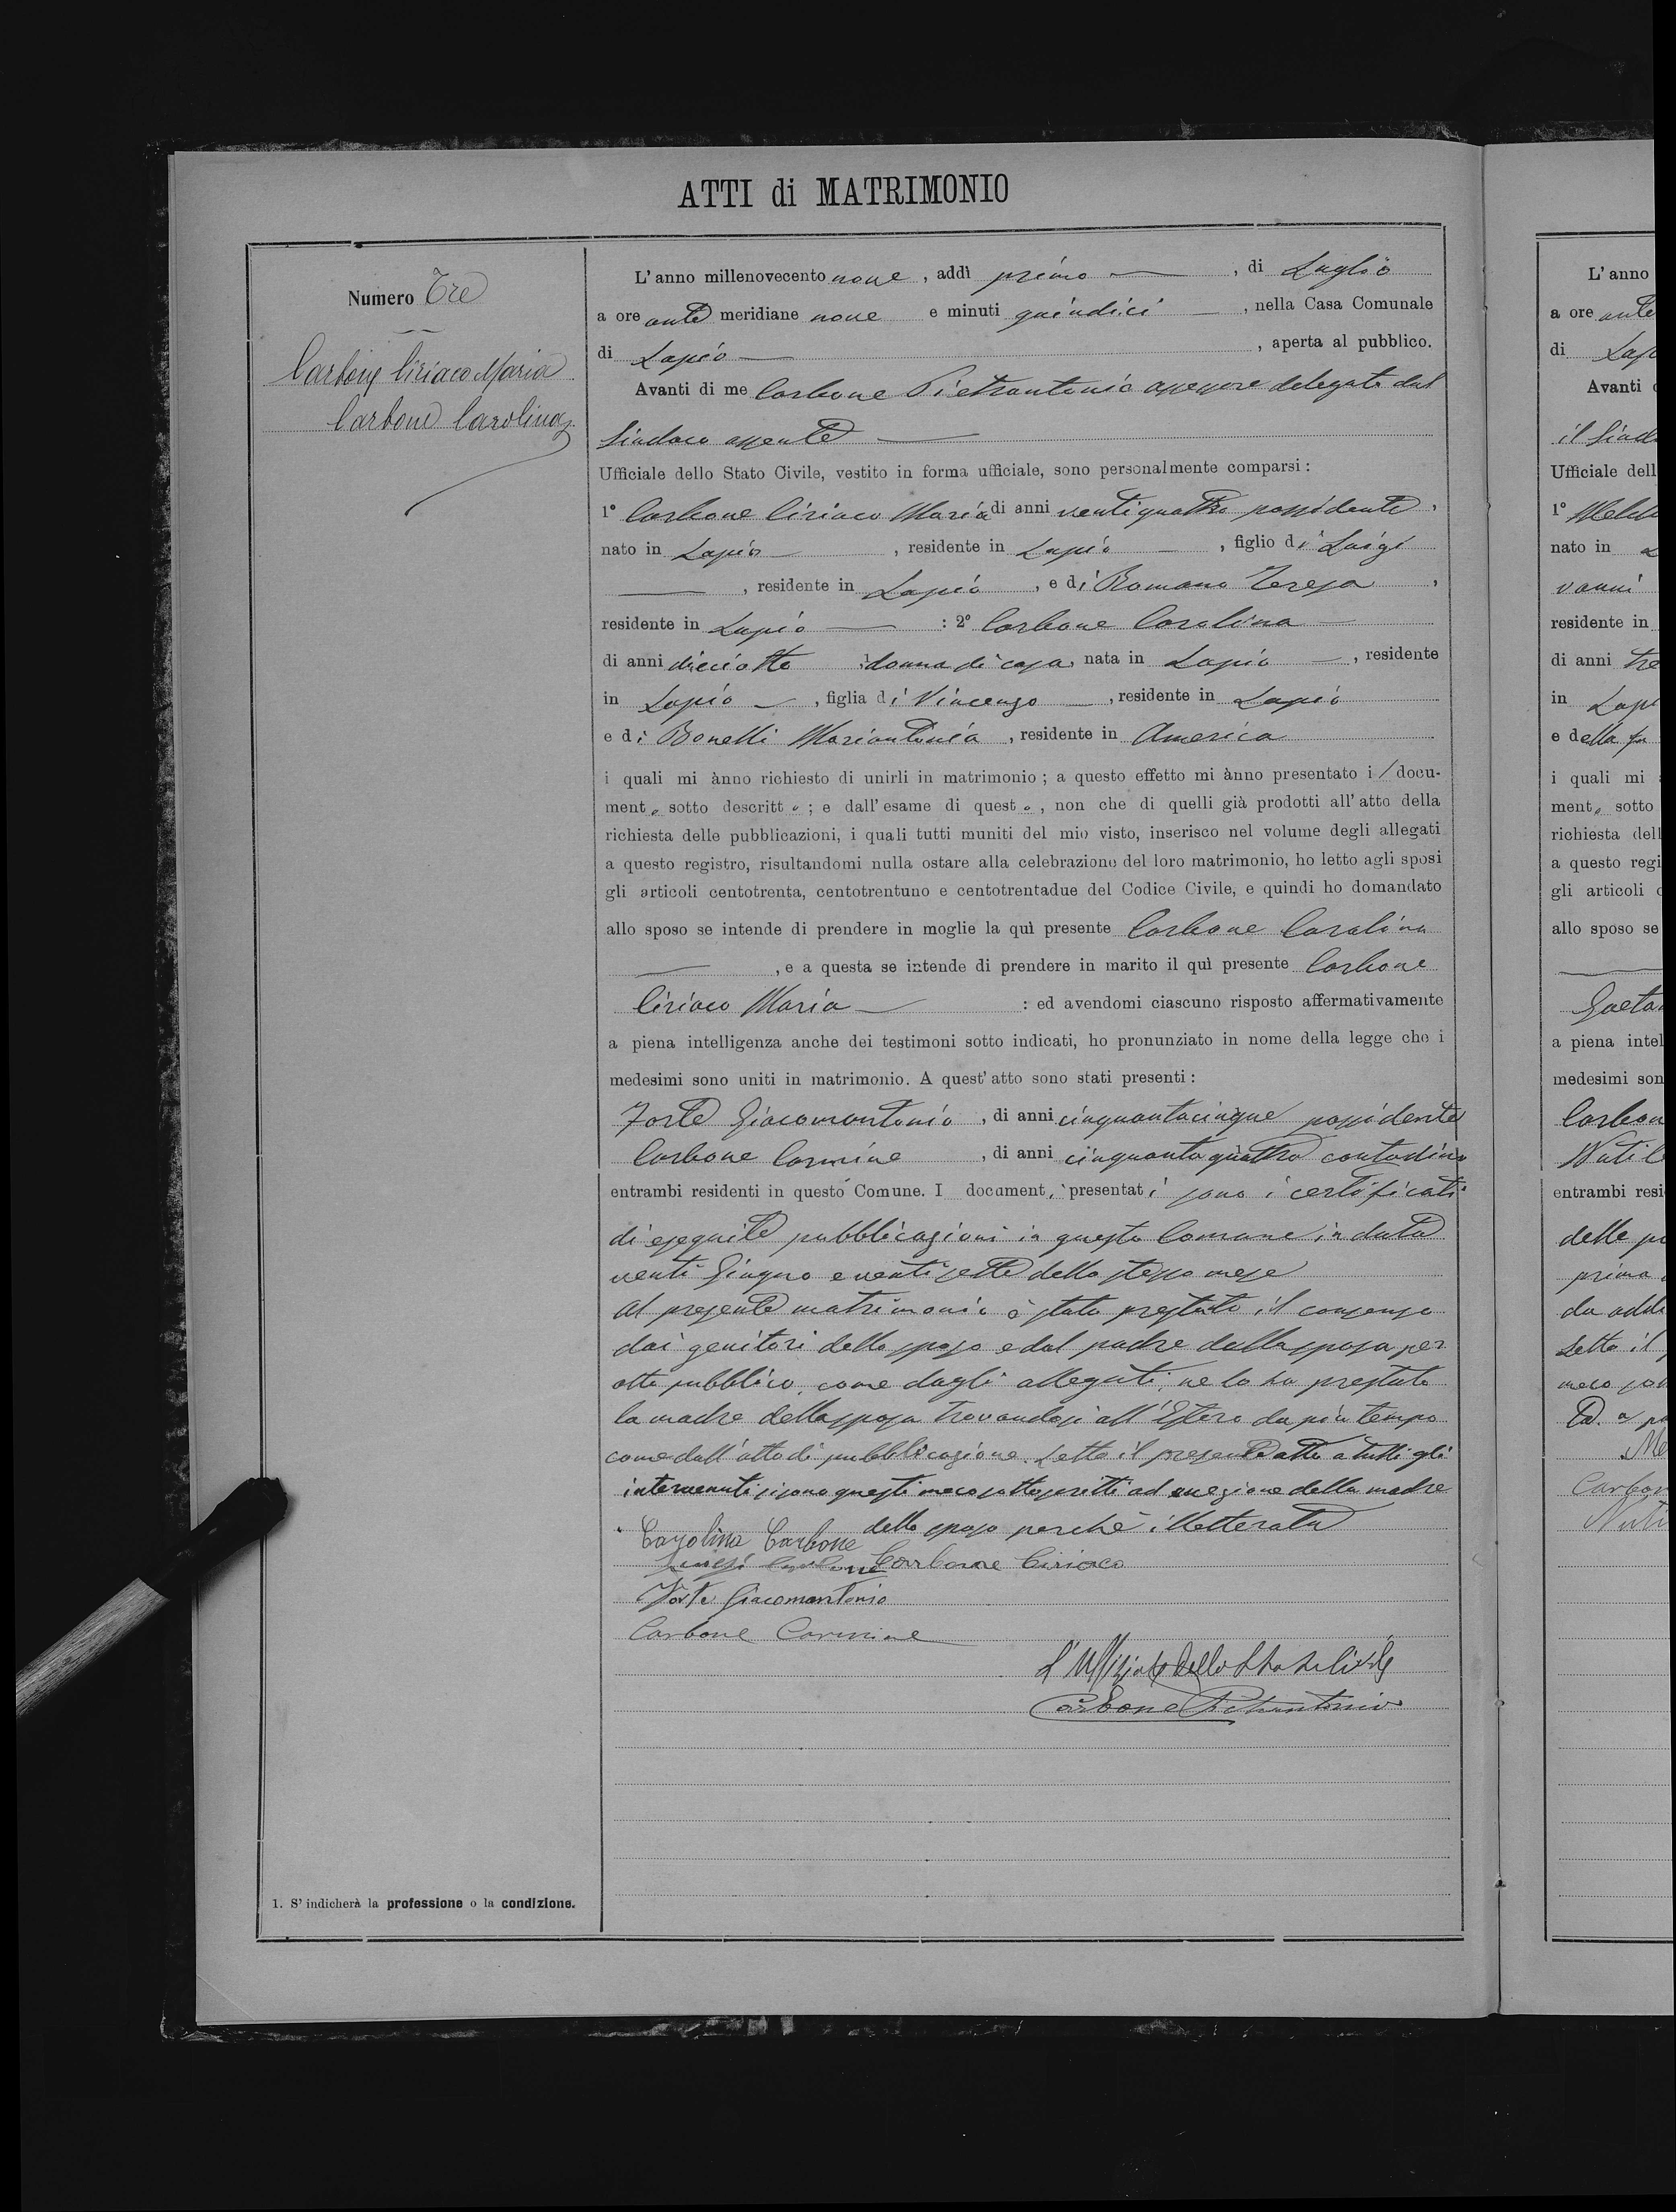 ATTI di MATRIMONIO
Numero Tre
Carbone Ciriaco Maria
Carbone Carolina
L'anno millenovecento nove, addì primo, di Luglio
a ore ante meridiane nove e minuti quindici, nella Casa Comunale
di Lapio, aperta al pubblico.
Avanti di me Carbone Pietrantonio assessore delegato dal
Sindaco assente
Ufficiale dello Stato Civile, vestito in forma ufficiale, sono personalmente comparsi:
1° Carbone Ciriaco Maria di anni ventiquattro possidente,
nato in Lapio, residente in Lapio, figlio di Luigi
, residente in Lapio, e di Romano Teresa,
residente in Lapio : 2° Carbone Carolina
di anni dieciotto donna di casa, nata in Lapio, residente
in Lapio, figlia di Vincenzo, residente in Lapio
e di Bonelli Mariantonia, residente in America
i quali mi ànno richiesto di unirli in matrimonio; a questo effetto mi ànno presentato i / docu-
mento sotto descritto; e dall'esame di questo, non che di quelli già prodotti all'atto della
richiesta delle pubblicazioni, i quali tutti muniti del mio visto, inserisco nel volume degli allegati
a questo registro, risultandomi nulla ostare alla celebrazione del loro matrimonio, ho letto agli sposi
gli articoli centotrenta, centotrentuno e centotrentadue del Codice Civile, e quindi ho domandato
allo sposo se intende di prendere in moglie la quì presente Carbone Carolina
, e a questa se intende di prendere in marito il quì presente Carbone
Ciriaco Maria : ed avendomi ciascuno risposto affermativamente
a piena intelligenza anche dei testimoni sotto indicati, ho pronunziato in nome della legge che i
medesimi sono uniti in matrimonio. A quest'atto sono stati presenti:
Forte Giacomantonio, di anni cinquantacinque possidente
Carbone Carmine, di anni cinquantaquattro contadino
entrambi residenti in questo Comune. I documenti presentati sono i certificati
di eseguite pubblicazioni in questo Comune in data
venti Giugno e ventisette dello stesso mese
Al presente matrimonio è stato prestato il consenso
dai genitori dello sposo e dal padre della sposa per
atto pubblico, come dagli allegati, ne lo ha prestato
la madre della sposa trovandosi all'Estero da più tempo
come dall'atto di pubblicazione. Letto il presente atto a tutti gli
intervenuti si sono questi meco sottoscritti ad eccezione della madre
dello sposo perchè illetterata
Carolina Carbone
Luigi Carbone Carbone Ciriaco
Forte Giacomantonio
Carbone Carmine
L'Uffiziale dello Stato Civile
Carbone Pietrantonio
1. S'indicherà la professione o la condizione.
L'anno
a ore ante
di Lap
Avanti
il Sind
Ufficiale dell
1°
nato in
vanni
residente in
di anni tre
in Lapi
e della fu
i quali mi
mento sotto
richiesta del
a questo regi
gli articoli
allo sposo se
Gaeta
a piena intel
medesimi son
Carbon
entrambi resi
delle pu
prima
da
Letto il
meco
Carbon